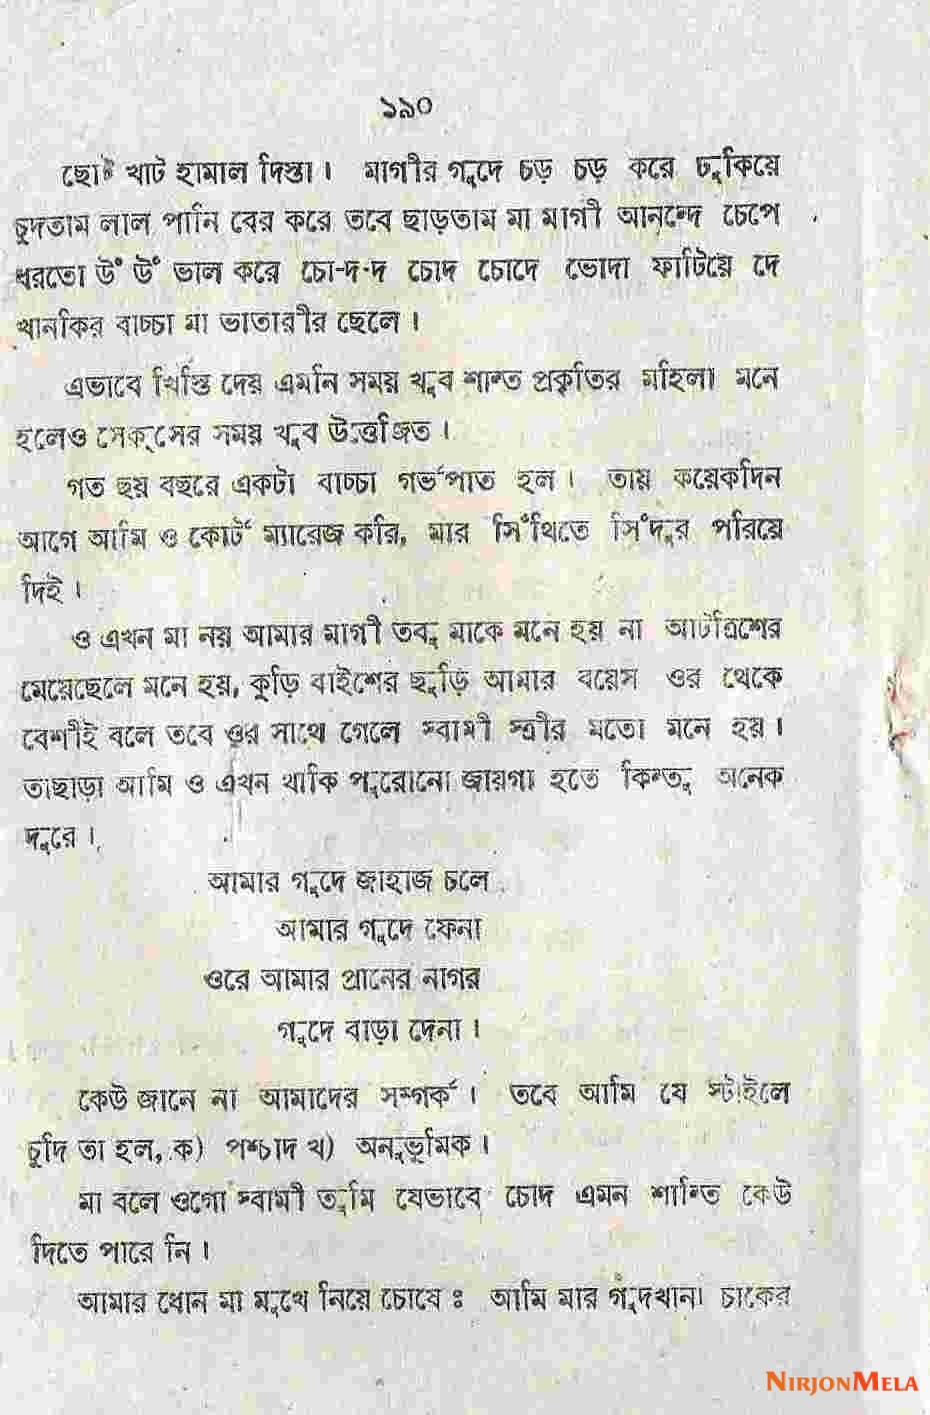 ১৯০
ছোট খাট হামাল দিস্তা। মাগীর গুদে চড় চড় করে ঢুকিয়ে
চুদতাম লাল পানি বের করে তবে ছাড়তাম মা মাগী আনন্দে চেপে
ধরতো উঁ উঁ ভাল করে চো-দ-দ চোদ চোদে ভোদা ফাটিয়ে দে
খানকির বাচ্চা মা ভাতারীর ছেলে।
এভাবে খিস্তি দেয় এমনি সময় খুব শান্ত প্রকৃতির মহিলা মনে
হলেও সেক্সের সময় খুব উত্তেজিত।
গত ছয় বছরে একটা বাচ্চা গর্ভপাত হল। তায় কয়েকদিন
আগে আমি ও কোর্ট ম্যারেজ করি, মার সিঁথিতে সিঁদুর পরিয়ে
দিই।
ও এখন মা নয় আমার মাগী তবু মাকে মনে হয় না আটত্রিশের
মেয়েছেলে মনে হয়, কুড়ি বাইশের ছুড়ি আমার বয়েস ওর থেকে
বেশীই বলে তবে ওর সাথে গেলে স্বামী স্ত্রীর মতো মনে হয়।
তাছাড়া আমি ও এখন থাকি পুরোনো জায়গা হতে কিন্তু অনেক
দুরে।
আমার গুদে জাহাজ চলে
আমার গুদে ফেনা
ওরে আমার প্রানের নাগর
গুদে বাড়া দেনা।
কেউ জানে না আমাদের সম্পর্ক। তবে আমি যে স্টাইলে
চুদি তা হল, ক) পশ্চাদ খ) অনুভূমিক।
মা বলে ওগো স্বামী তুমি যেভাবে চোদ এমন শান্তি কেউ
দিতে পারে নি।
আমার ধোন মা মুখে নিয়ে চোষে ঃ আমি মার গুদখানা চাকের
NIRJONMELA